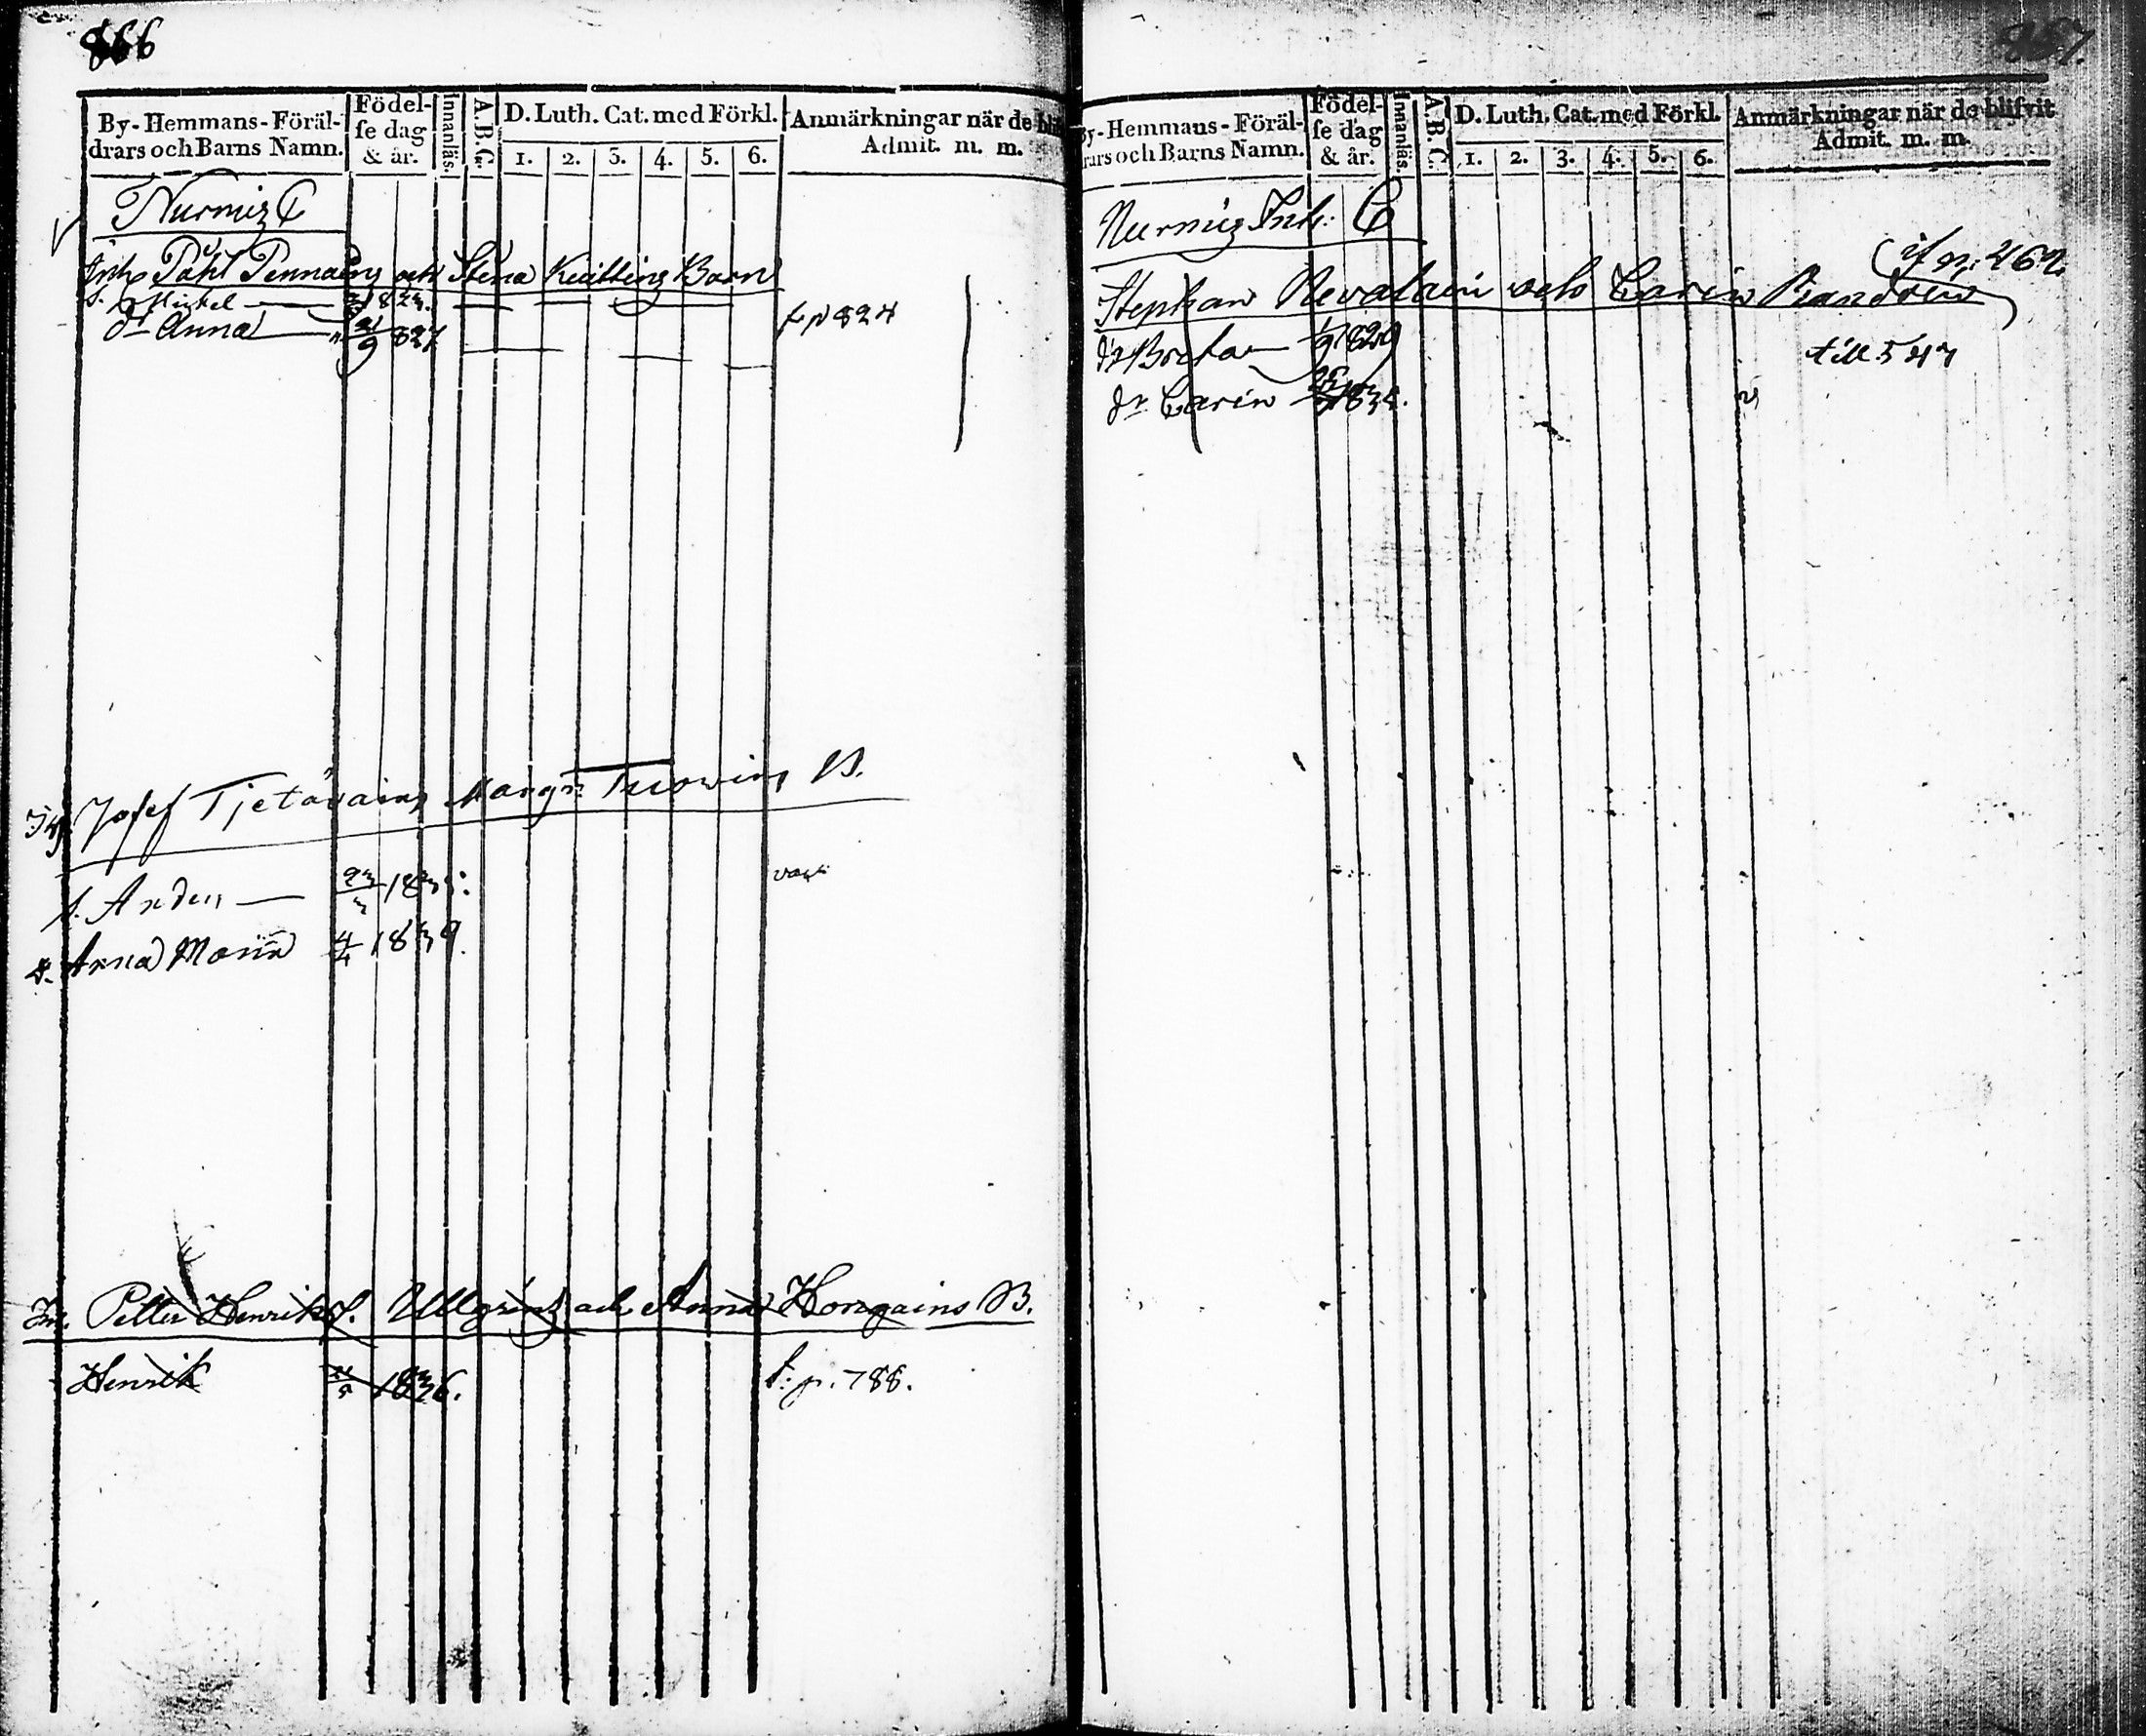 866
By-Hemmans-Föräl-
drars och Barns Namn.
Födel-
se dag
& år.
Innanläs.
A.B.C.
D. Luth. Cat. med Förkl.
1. 2. 3. 4. 5. 6.
Anmärkningar när de blif
Admit. m. m.
Nurmiz C
Inh. Påhl Pennains och Stina Kuittins Barn
s. Mickel
dr Anna 9 827
f p 824
Josef Tjetäväinz Margr. Tuowinz B.
s. Anders
d. Anna Maria 4/4 1839.
Petter Henriks. Ullgrens och Anna Hongains B.
Henrik 1836.
f: p. 788.
867.
By-Hemmans-Föräl-
drars och Barns Namn.
Födel-
se dag
& år.
Innanläs.
A.B.C.
D. Luth. Cat. med Förkl.
1. 2. 3. 4. 5. 6.
Anmärkningar när de blifvit
Admit. m. m.
Nurmiz Inh: C
Stephan Nevalain och Carin
dr Breta 1/9 1829
till 547
dr Carin